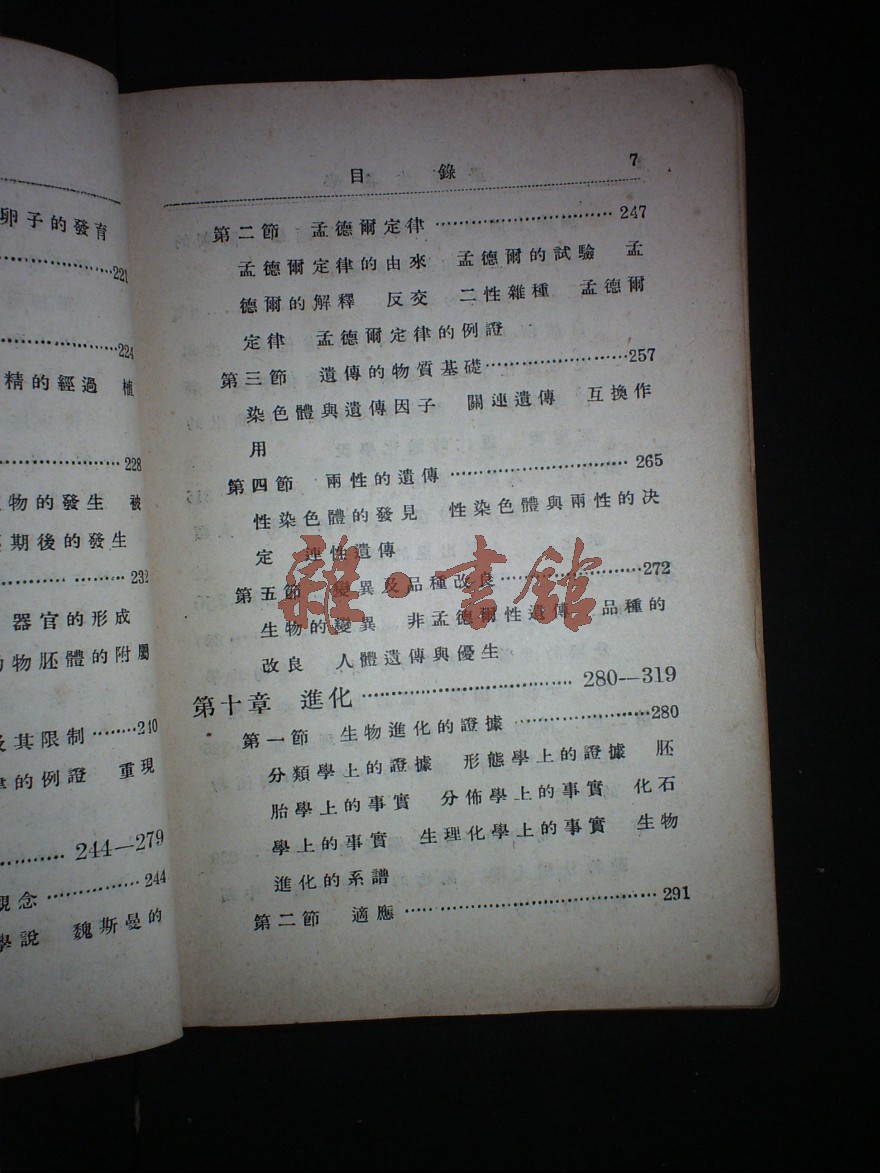 卵子的發育
……221
……224
精的經過 植
……228
物的發生 被
期後的發生
……232
器官的形成
物胚體的附屬
及其限制……240
的例證 重現
……244—279
觀念……244
學說 魏斯曼的
目 錄 7
第二節 孟德爾定律……247
孟德爾定律的由來 孟德爾的試驗 孟
德爾的解釋 反交 二性雜種 孟德爾
定律 孟德爾定律的例證
第三節 遺傳的物質基礎……257
染色體與遺傳因子 關連遺傳 互換作
用
第四節 兩性的遺傳……265
性染色體的發見 性染色體與兩性的决
定 連性遺傳
第五節 變異及品種改良……272
生物的變異 非孟德爾性遺傳 品種的
改良 人體遺傳與優生
第十章 進化……280—319
第一節 生物進化的證據……280
分類學上的證據 形態學上的證據 胚
胎學上的事實 分佈學上的事實 化石
學上的事實 生理化學上的事實 生物
進化的系譜
第二節 適應……291
雜·書館